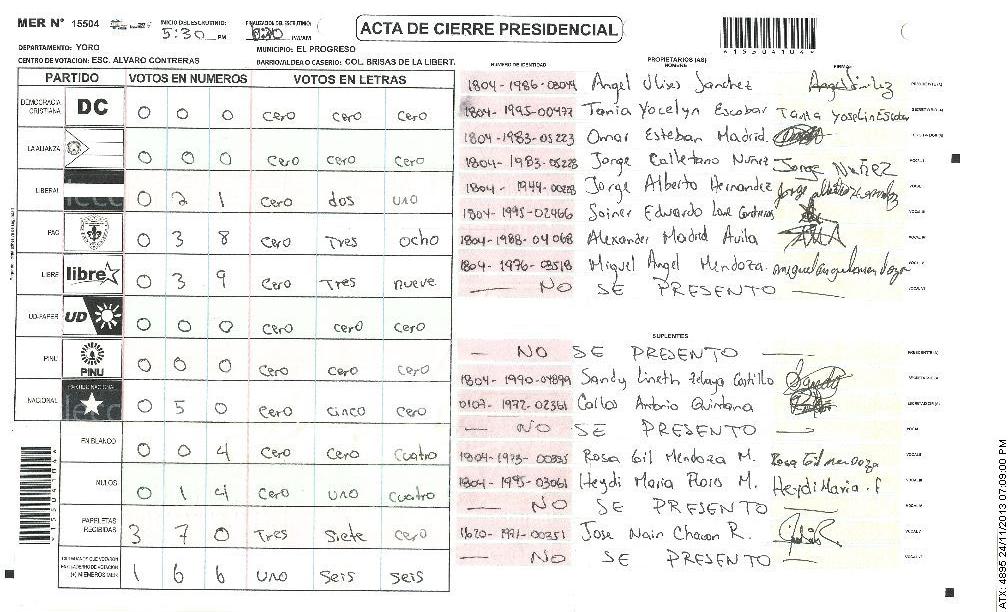 MER N° 15504
INICIO DEL ESCRUTINIO: 5:30 PM
ACTA DE CIERRE PRESIDENCIAL
*15504104*
DEPARTAMENTO: YORO
MUNICIPIO: EL PROGRESO
CENTRO DE VOTACION: ESC. ALVARO CONTRERAS
BARRIO/ALDEA O CASERIO: COL. BRISAS DE LA LIBERT.
PARTIDO VOTOS EN NUMEROS VOTOS EN LETRAS
DEMOCRACIA CRISTIANA DC 0 0 0 cero cero cero
LA ALIANZA 0 0 0 cero cero cero
LIBERAL 0 2 1 cero dos uno
PAC 0 3 8 cero Tres ocho
LIBRE libre 0 3 9 cero Tres nueve
UD-FAPER UD 0 0 0 cero cero cero
PINU PINU 0 0 0 cero cero cero
NACIONAL 0 5 0 cero cinco cero
EN BLANCO 0 0 4 cero cero cuatro
NULOS 0 1 4 cero uno cuatro
PAPELETAS RECIBIDAS 3 7 0 Tres Siete cero
1 6 6 uno seis seis
PROPIETARIOS (AS)
NUMERO DE IDENTIDAD NOMBRE FIRMA
Angel Ulises Sanchez
1804-1995-00477 Tania Yocelyn Escobar Tania Yoselin Escobar
1804-1983-05223 Omar Esteban Madrid
1804-1983-05228 Jorge Calletano Nuñez Jorge Nuñez
Jorge Alberto Hernandez
1804-1995-02466 Eduardo
1804-1988-04068 Alexander Madrid Avila
1804-1976-03518 Miguel Angel Mendoza
— NO SE PRESENTO —
SUPLENTES
— NO SE PRESENTO —
1804-1990-04899 Sandy Lineth Zelaya Castillo Sandy
0107-1972-02361 Carlos Antonio Quintana
— NO SE PRESENTO —
1804-1973-00335 Rosa Gil Mendoza M. Rosa Gil Mendoza
1804-1995-03061 Heydi Maria Flores M. Heydi Maria F
— NO SE PRESENTO —
1620-1971-00351 Jose Nain Chacon R.
— NO SE PRESENTO —
ATX: 4895 24/11/2013 07:09:00 PM